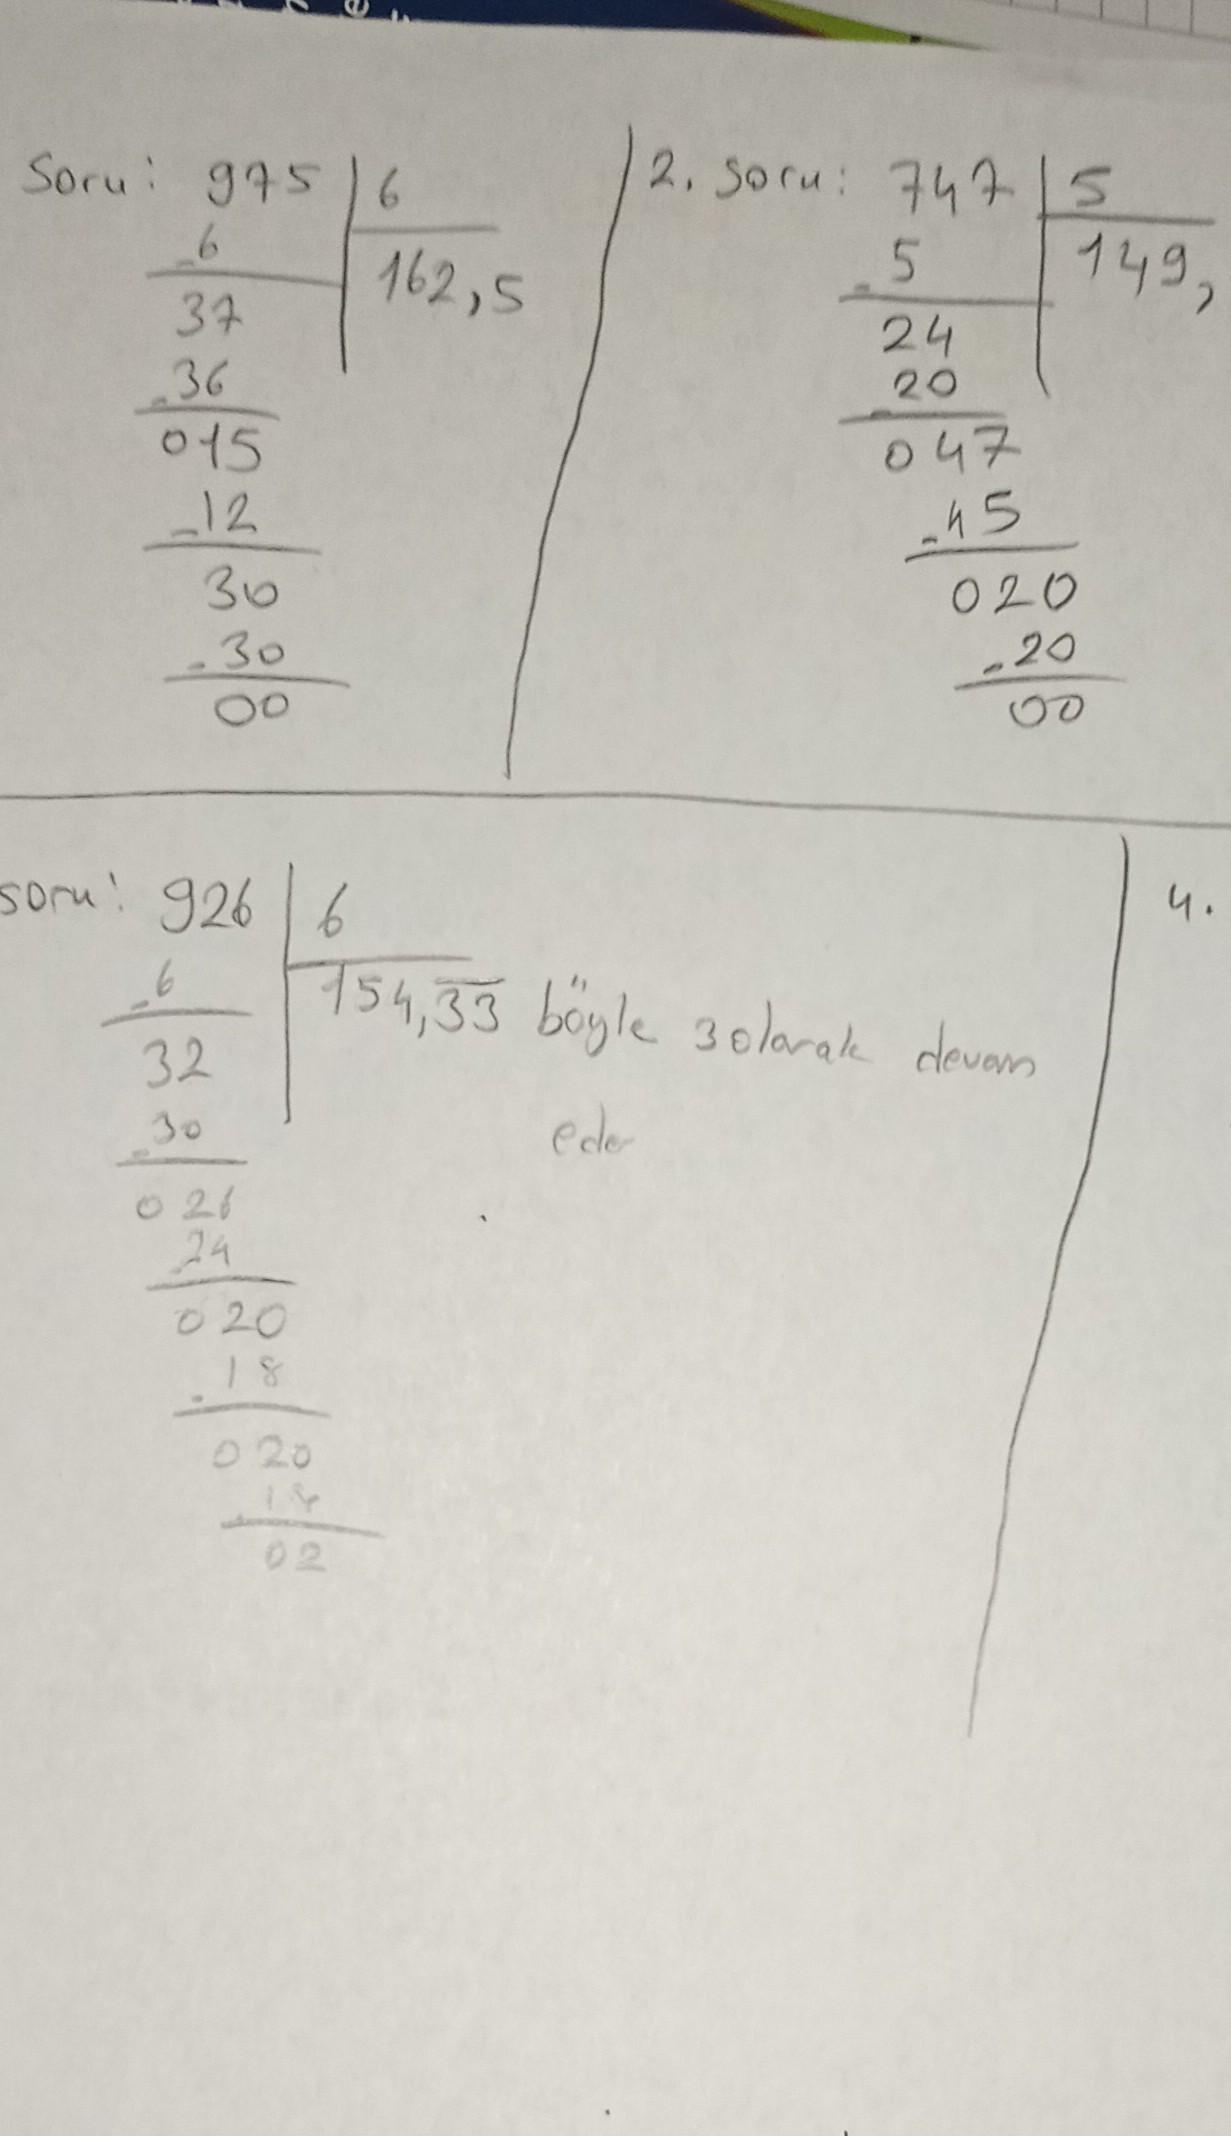 Soru: 975 | 6
- 6
162,5
37
- 36
015
- 12
30
- 30
00
2. soru: 747 | 5
- 5
149,
24
- 20
047
- 45
020
- 20
00
soru: 926 | 6
- 6
154,3̅3̅ böyle 3 olarak devam
eder
32
- 30
026
24
020
- 18
020
- 18
02
4.